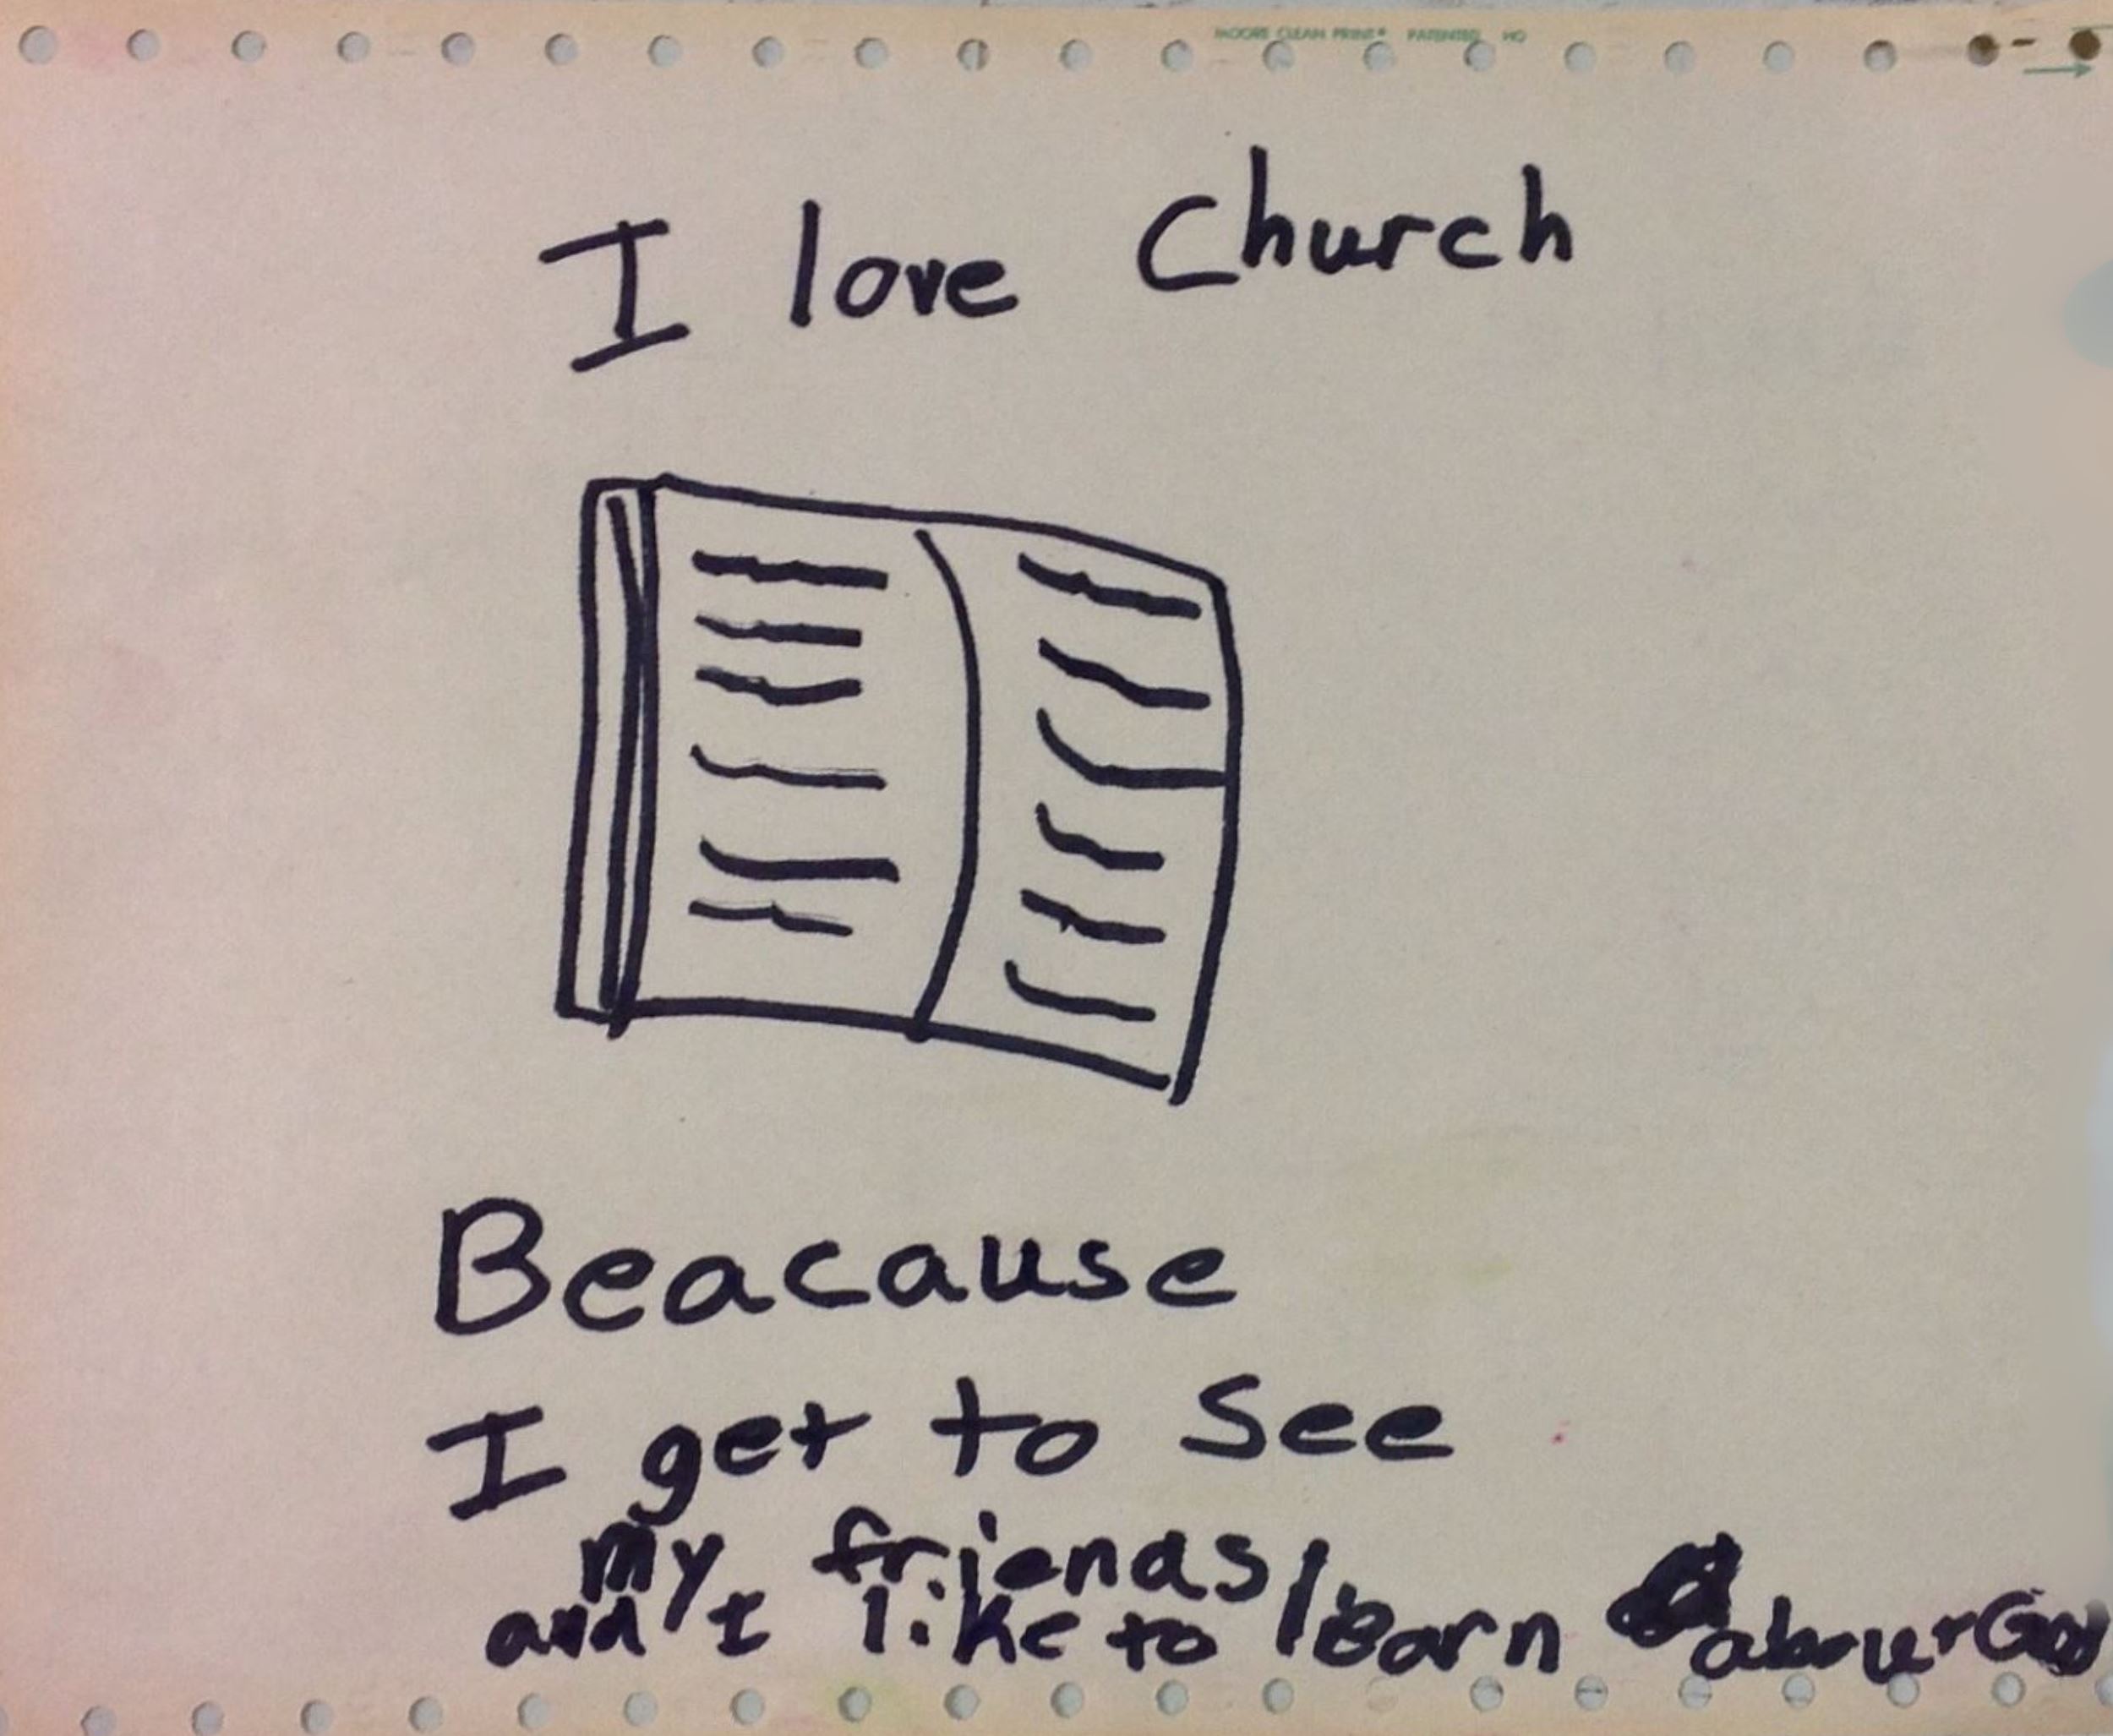 MOORE CLEAN PRINT® PATENTED
I love Church
Beacause
I get to see
my friends
and I like to learn about God